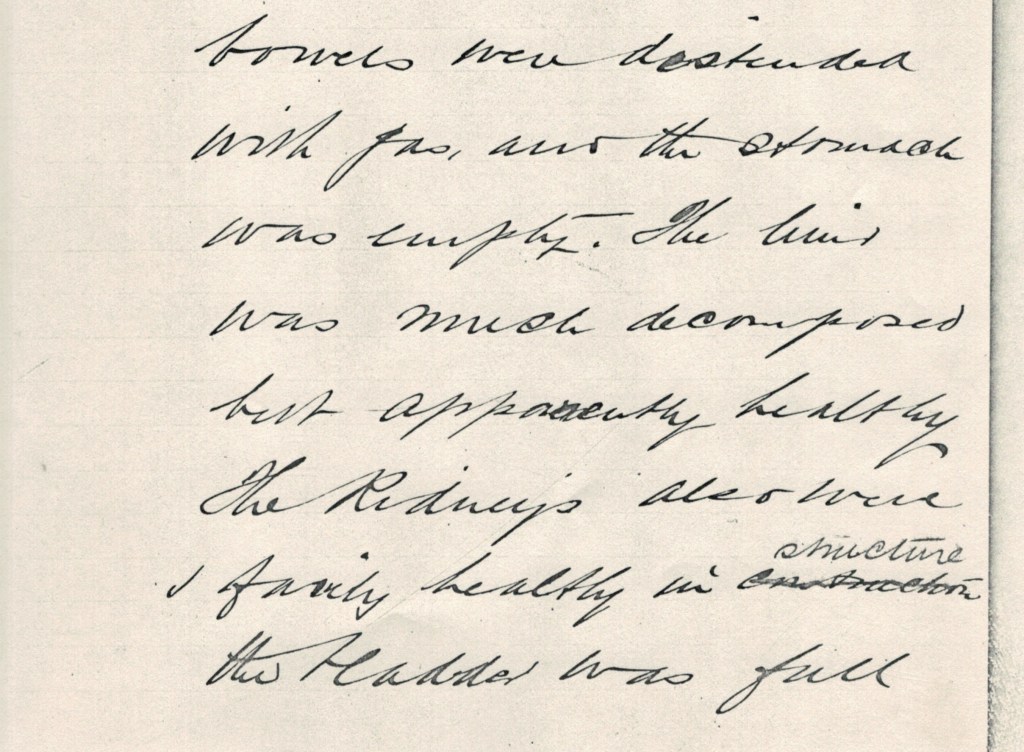 bowels were distended
with gas, and the stomach
was empty. The liver
was much decomposed
but apparently healthy
The Kidneys also were
fairly healthy in construction structure
the bladder was full